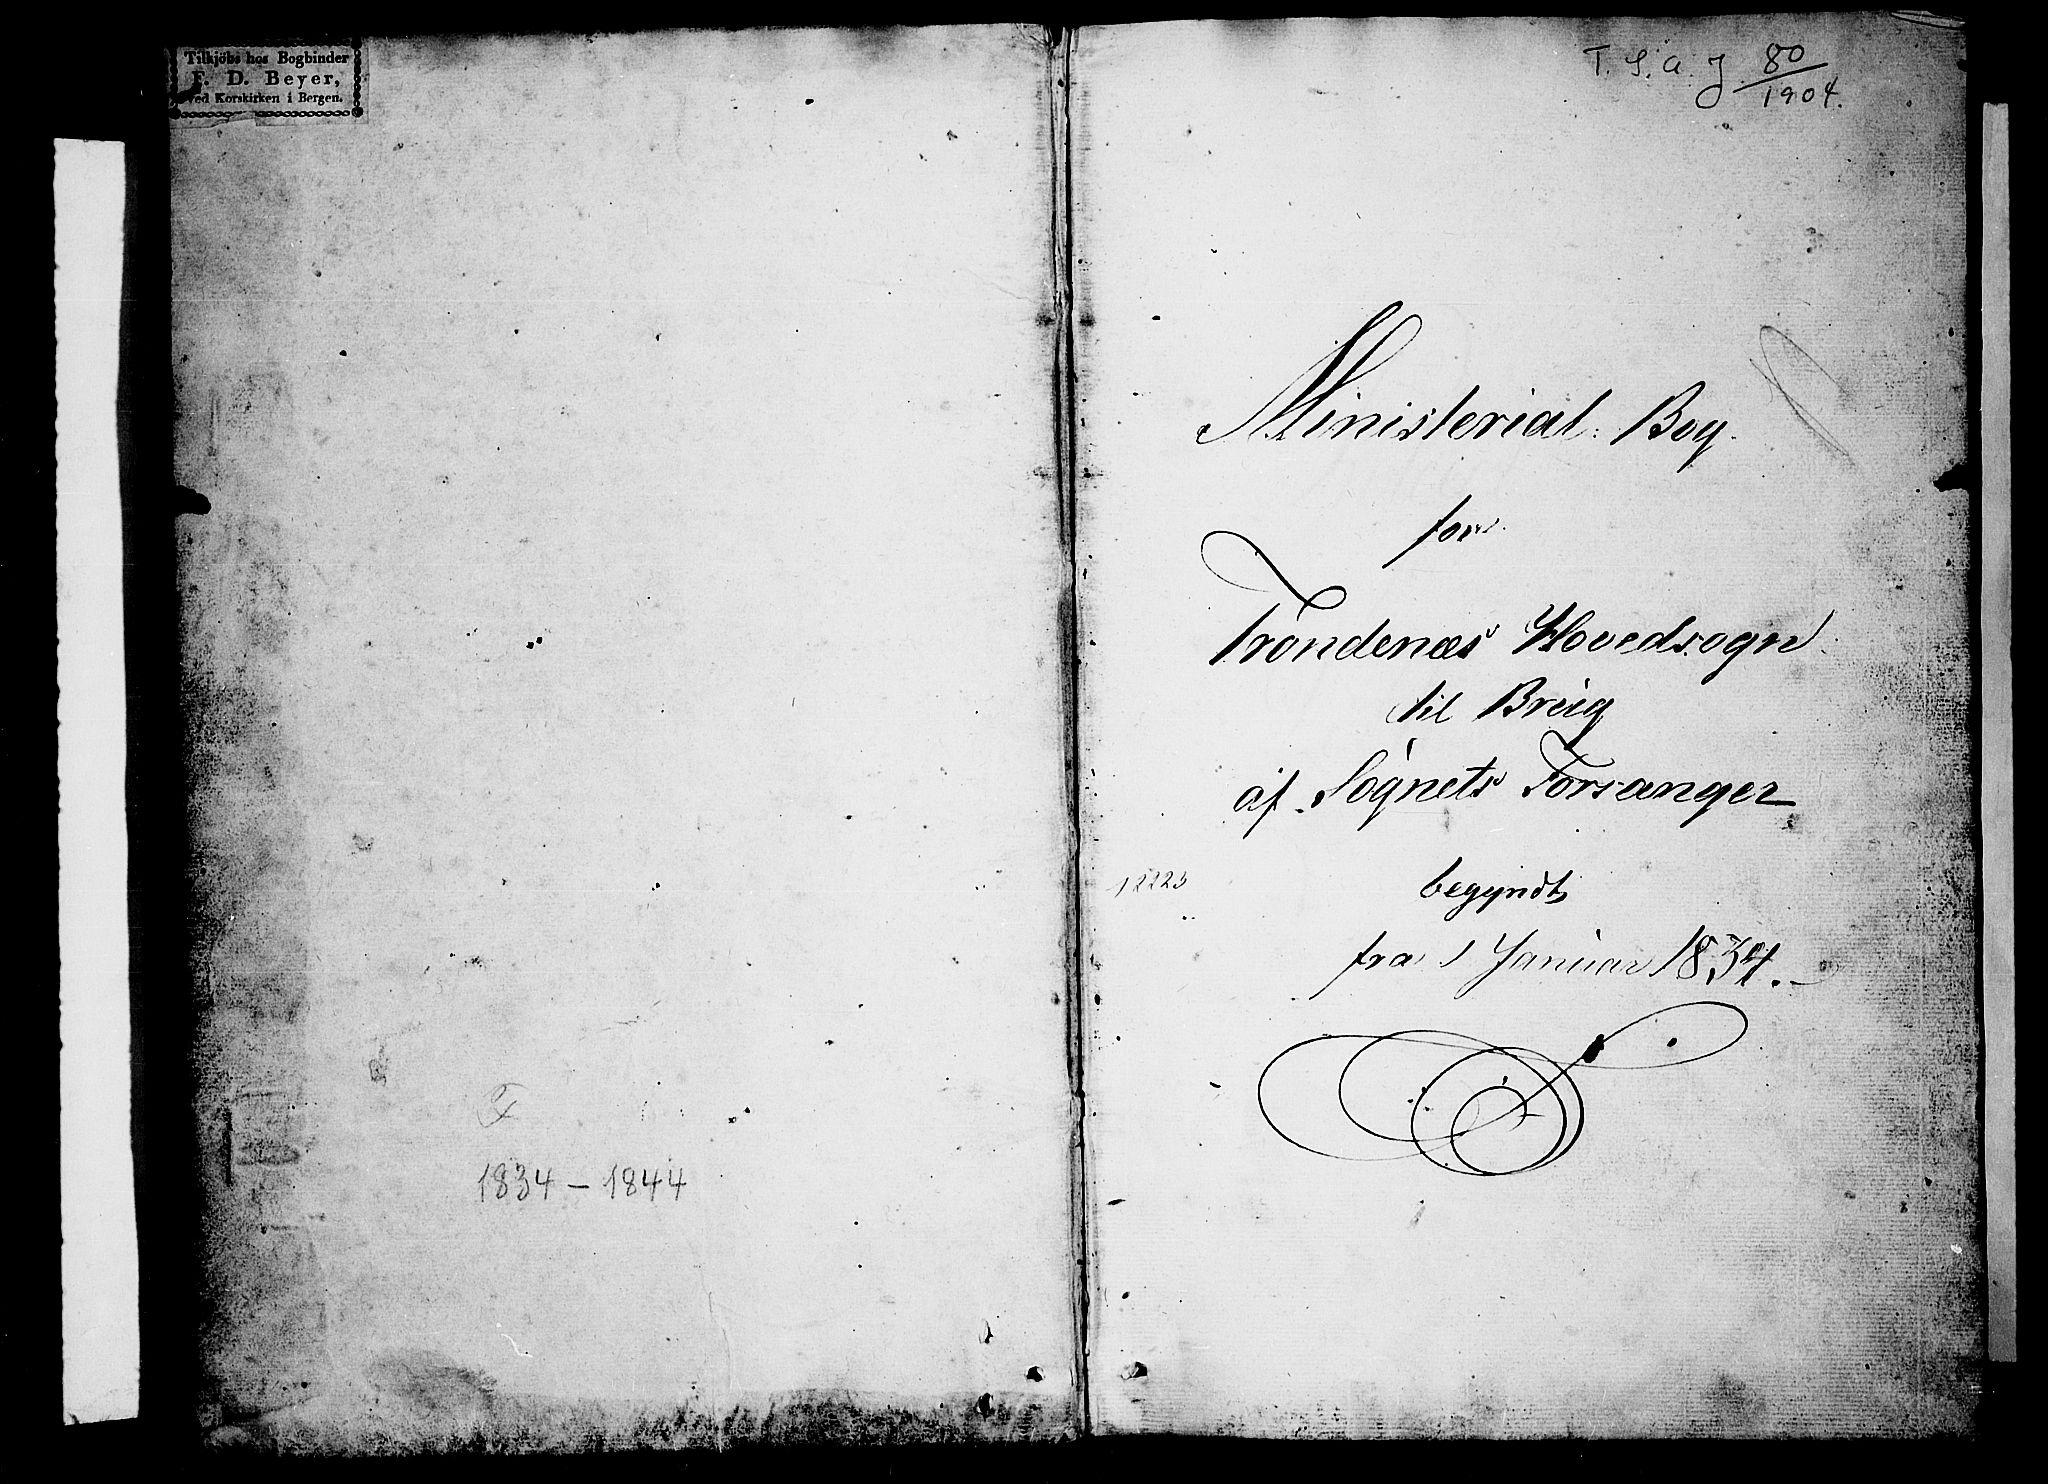 Tilkjöbs hos Bogbinder
F. D. Beyer,
ved Korskirken i Bergen.
1834 – 1844
T. S. a. J 80/1904.
Ministerial Bog
for
Trondenæs Hovedsogn
til Brúg
af Sognets Forsanger
12223
begyndt
fra 1 Januar 1834.